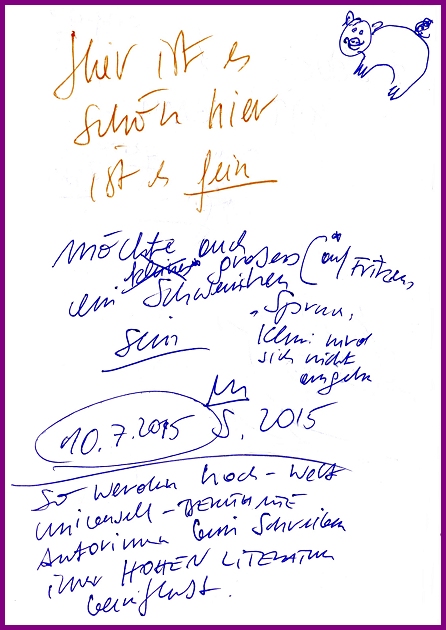 Hier ist es
schön hier
ist es fein
möchte auch
kleines großes
ein Schweinchen
sein
(* auf Fritzens
Spruch,
wird
sich nicht
10.7.2015 S. 2015
So werden hoch-welt
universell-BERÜHMTE
Autorinnen beim Schreiben
ihrer HOHEN LITERATUR
beeinflusst.